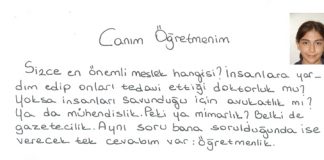 Canım Öğretmenim
Sizce en önemli meslek hangisi? İnsanlara yar_
dım edip onları tedavi ettiği doktorluk mu?
Yoksa insanları savunduğu için avukatlık mı?
Ya da mühendislik. Peki ya mimarlık? Belki de
gazetecilik. Aynı soru bana sorulduğunda ise
verecek tek cevabım var: Öğretmenlik.